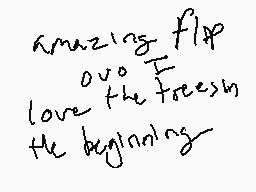 amazing flip
ovo I
love the trees in
the beginning